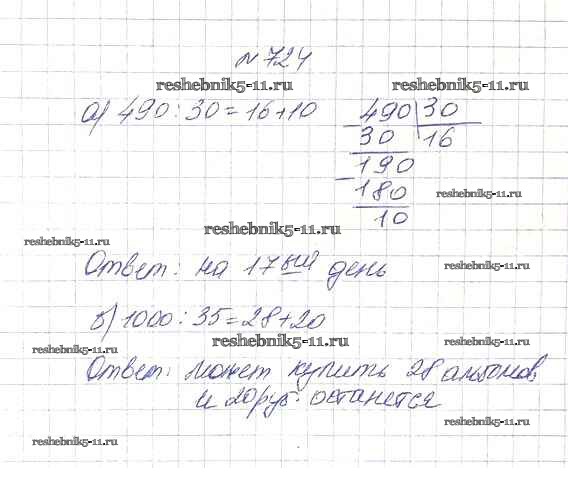 № 724
reshebnik5-11.ru
reshebnik5-11.ru
а) 490 : 30 = 16 + 10
490 30
30 16
190
180
10
reshebnik5-11.ru
reshebnik5-11.ru
reshebnik5-11.ru
Ответ: на 17ый день
reshebnik5-11.ru
б) 1000 : 35 = 28 + 20
reshebnik5-11.ru
reshebnik5-11.ru
reshebnik5-11.ru
Ответ: может купить 28 альбомов
и 20 руб. останется
reshebnik5-11.ru
reshebnik5-11.ru